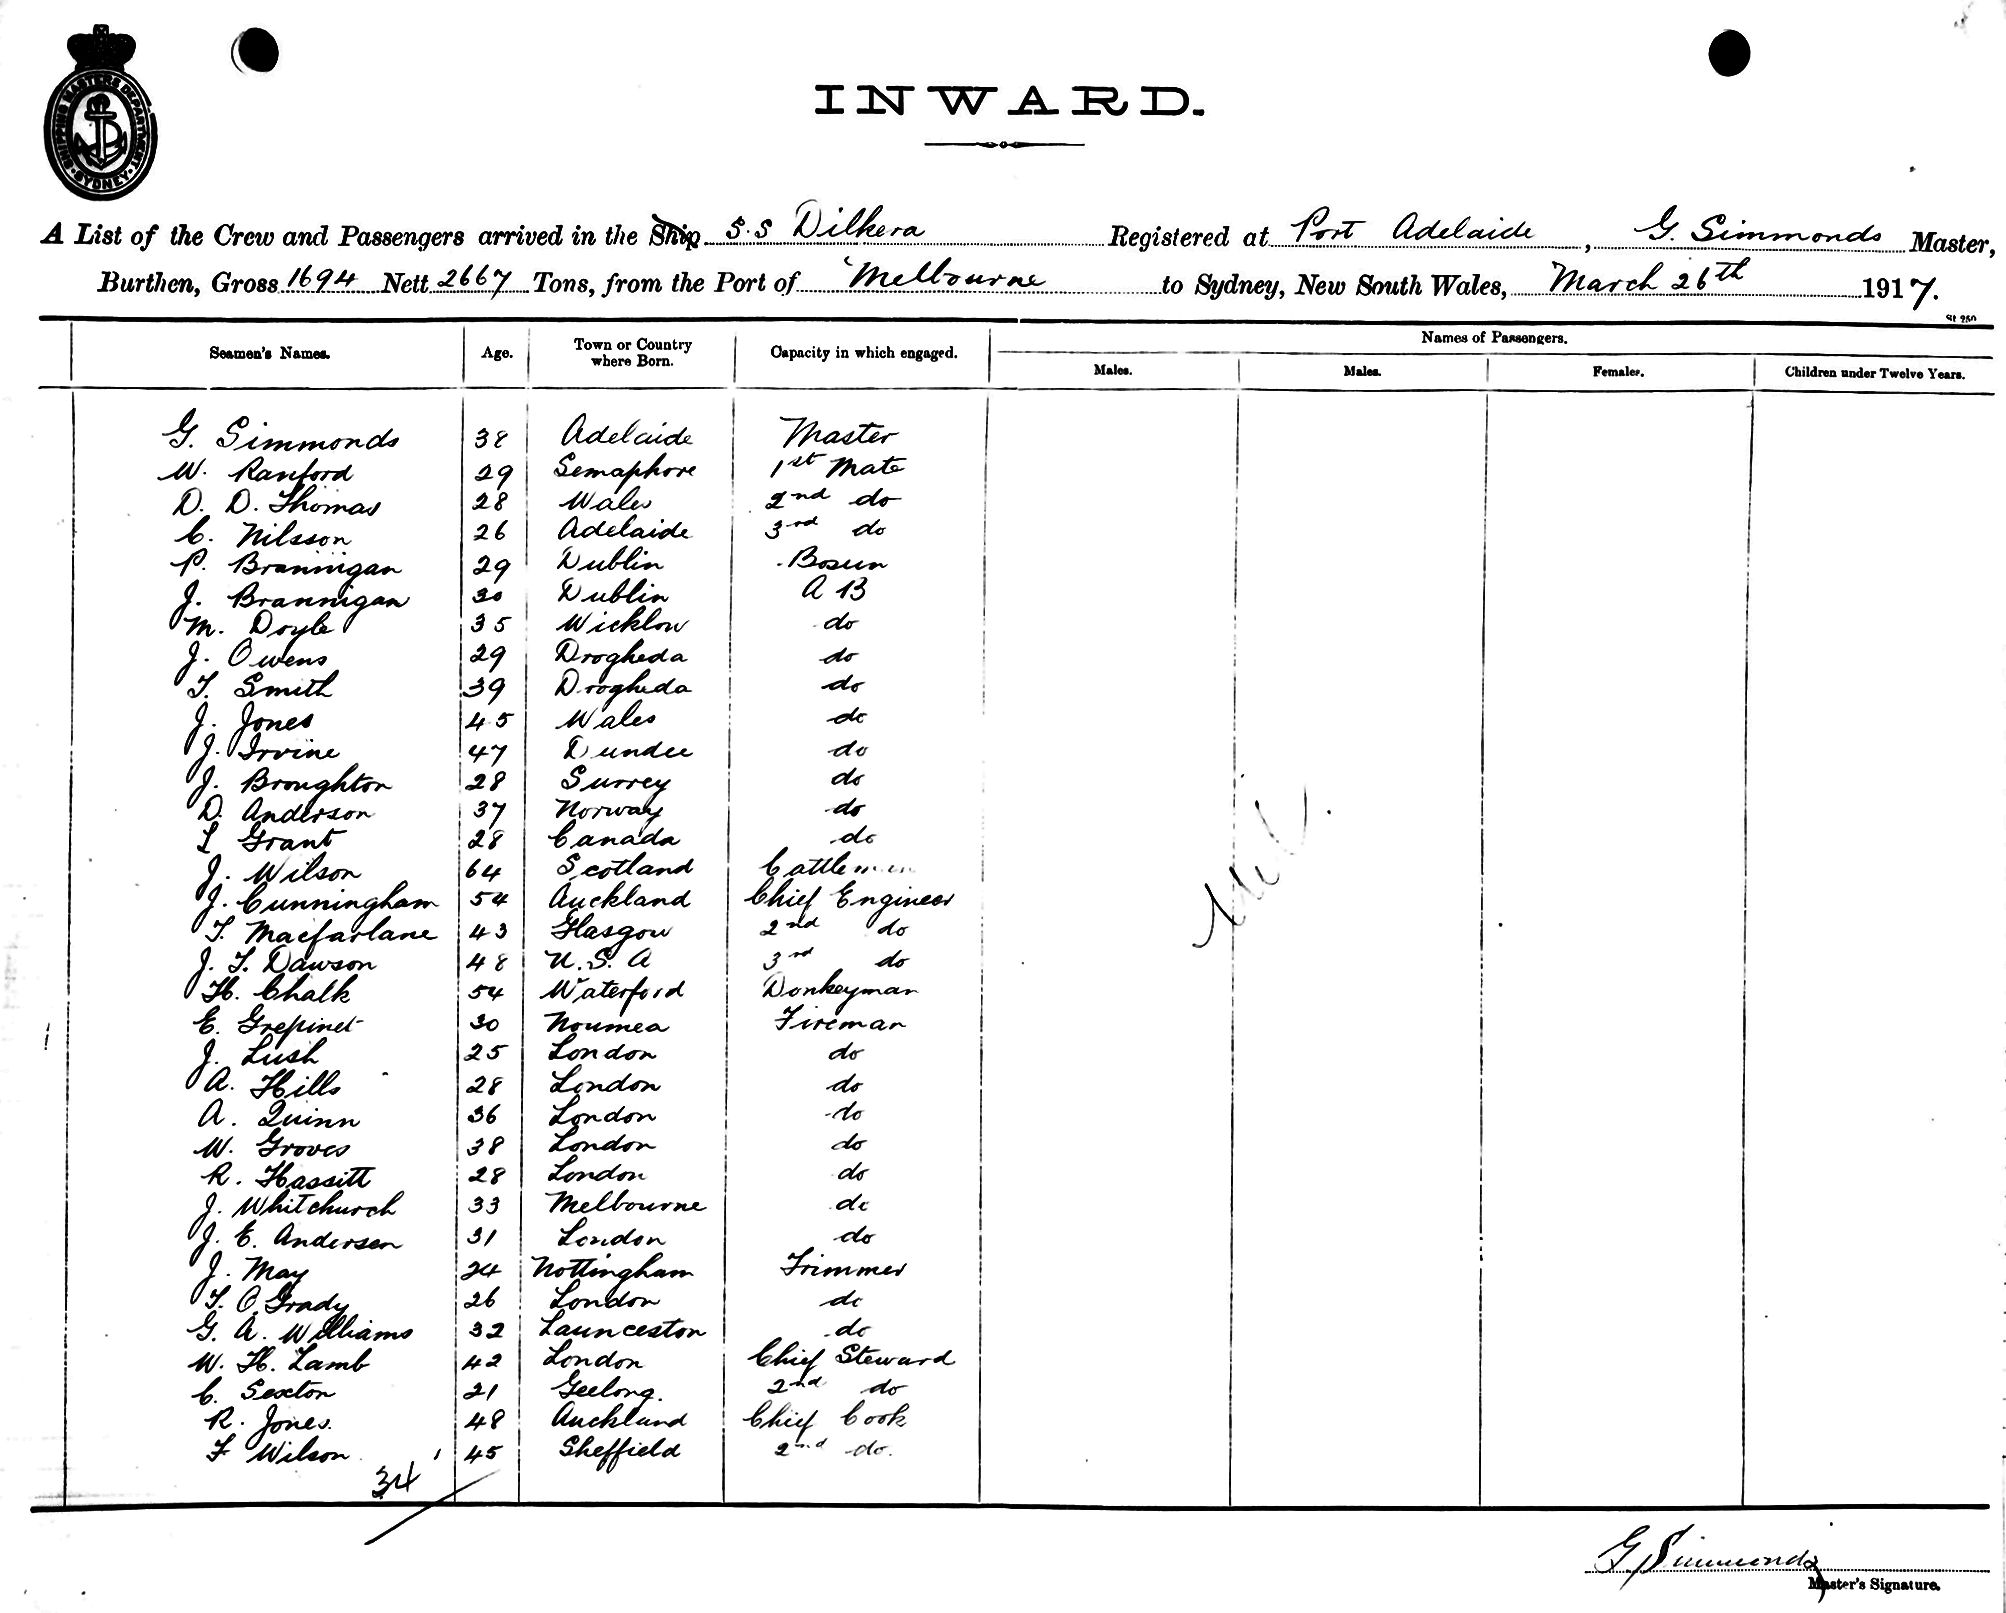 SHIPPING MASTERS DEPARTMENT
SYDNEY
INWARD.
A List of the Crew and Passengers arrived in the Ship S.S Dilkera Registered at Port Adelaide, G. Simmonds Master,
Burthen, Gross 1694 Nett 2667 Tons, from the Port of Melbourne to Sydney, New South Wales, March 26th 1917.
St 250
Seamen's Names. Age. Town or Country where Born. Capacity in which engaged. Names of Passengers.
Males. Males. Females. Children under Twelve Years.
G. Simmonds 38 Adelaide Master
W. Ranford 29 Semaphore 1st Mate
D. D. Thomas 28 Wales 2nd do
C. Nilsson 26 Adelaide 3rd do
P. Brannigan 29 Dublin Bosun
J. Brannigan 30 Dublin A B
M. Doyle 35 Wicklow do
J. Owens 29 Drogheda do
T. Smith 39 Drogheda do
J. Jones 45 Wales do
J. Irvine 47 Dundee do
J. Broughton 28 Surrey do
D. Anderson 37 Norway do
L Grant 28 Canada do
J. Wilson 64 Scotland Cattleman
J. Cunningham 54 Auckland Chief Engineer
T. Macfarlane 43 Glasgow 2nd do
J. T. Dawson 48 U.S.A 3rd do
H. Chalk 54 Waterford Donkeyman
E. Grepinet 30 Noumea Fireman
J. Lush 25 London do
A. Hills 28 London do
A. Quinn 36 London do
W. Groves 38 London do
R. Hassitt 28 London do
J. Whitchurch 33 Melbourne do
J. E. Andersen 31 London do
J. May 24 Nottingham Trimmer
T. O Grady 26 London do
G. A. Williams 32 Launceston do
W. H. Lamb 42 London Chief Steward
C. Sexton 21 Geelong. 2nd do
R. Jones. 48 Auckland Chief Cook
F Wilson 45 Sheffield 2nd do.
34
Nil.
G Simmonds
Master's Signature.